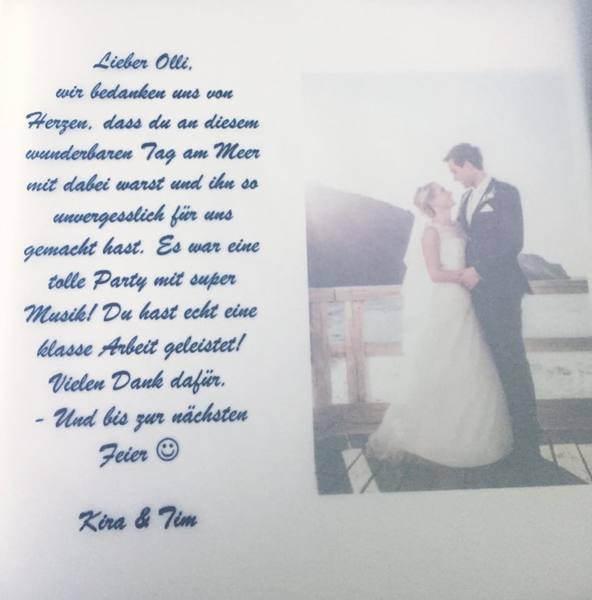 Lieber Olli,
wir bedanken uns von
Herzen, dass du an diesem
wunderbaren Tag am Meer
mit dabei warst und ihn so
unvergesslich für uns
gemacht hast. Es war eine
tolle Party mit super
Musik! Du hast echt eine
klasse Arbeit geleistet!
Vielen Dank dafür.
- Und bis zur nächsten
Feier ☺
Kira & Tim